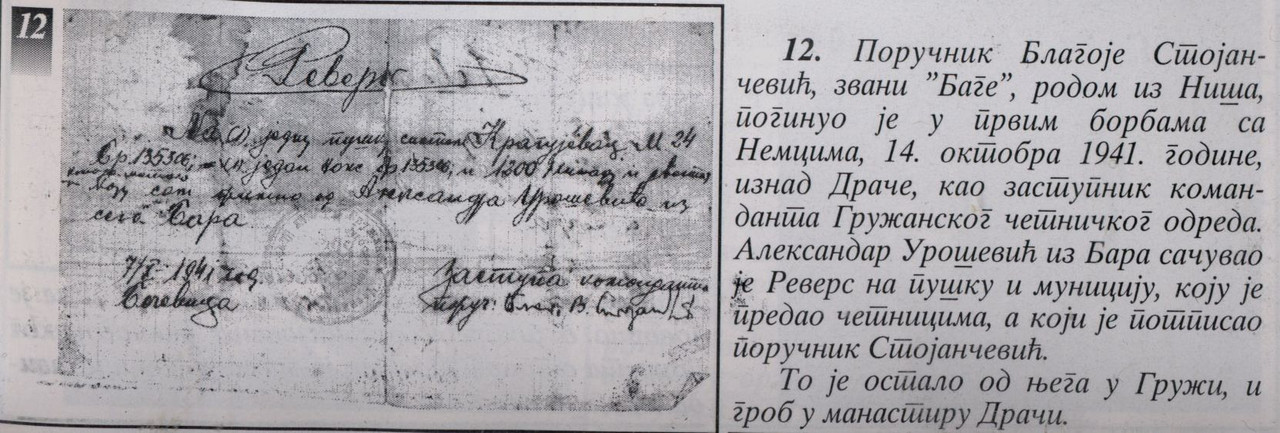 12
Реверс
На (1) једну пушку систем Крагујевац М 24
Бр. 135306, и један кокс бр 135306, и 1200
сам примио од Александра Урошевића из
села Бара
7/X - 1941 год.
Заступа команданта
пору:
12. Поручник Благоје Стојан-
чевић, звани "Баге", родом из Ниша,
погинуо је у првим борбама са
Немцима, 14. октобра 1941. године,
изнад Драче, као заступник коман-
данта Гружанског четничког одреда.
Александар Урошевић из Бара сачувао
је Реверс на пушку и муницију, коју је
предао четницима, а који је потписао
поручник Стојанчевић.
То је остало од њега у Гружи, и
гроб у манастиру Драчи.